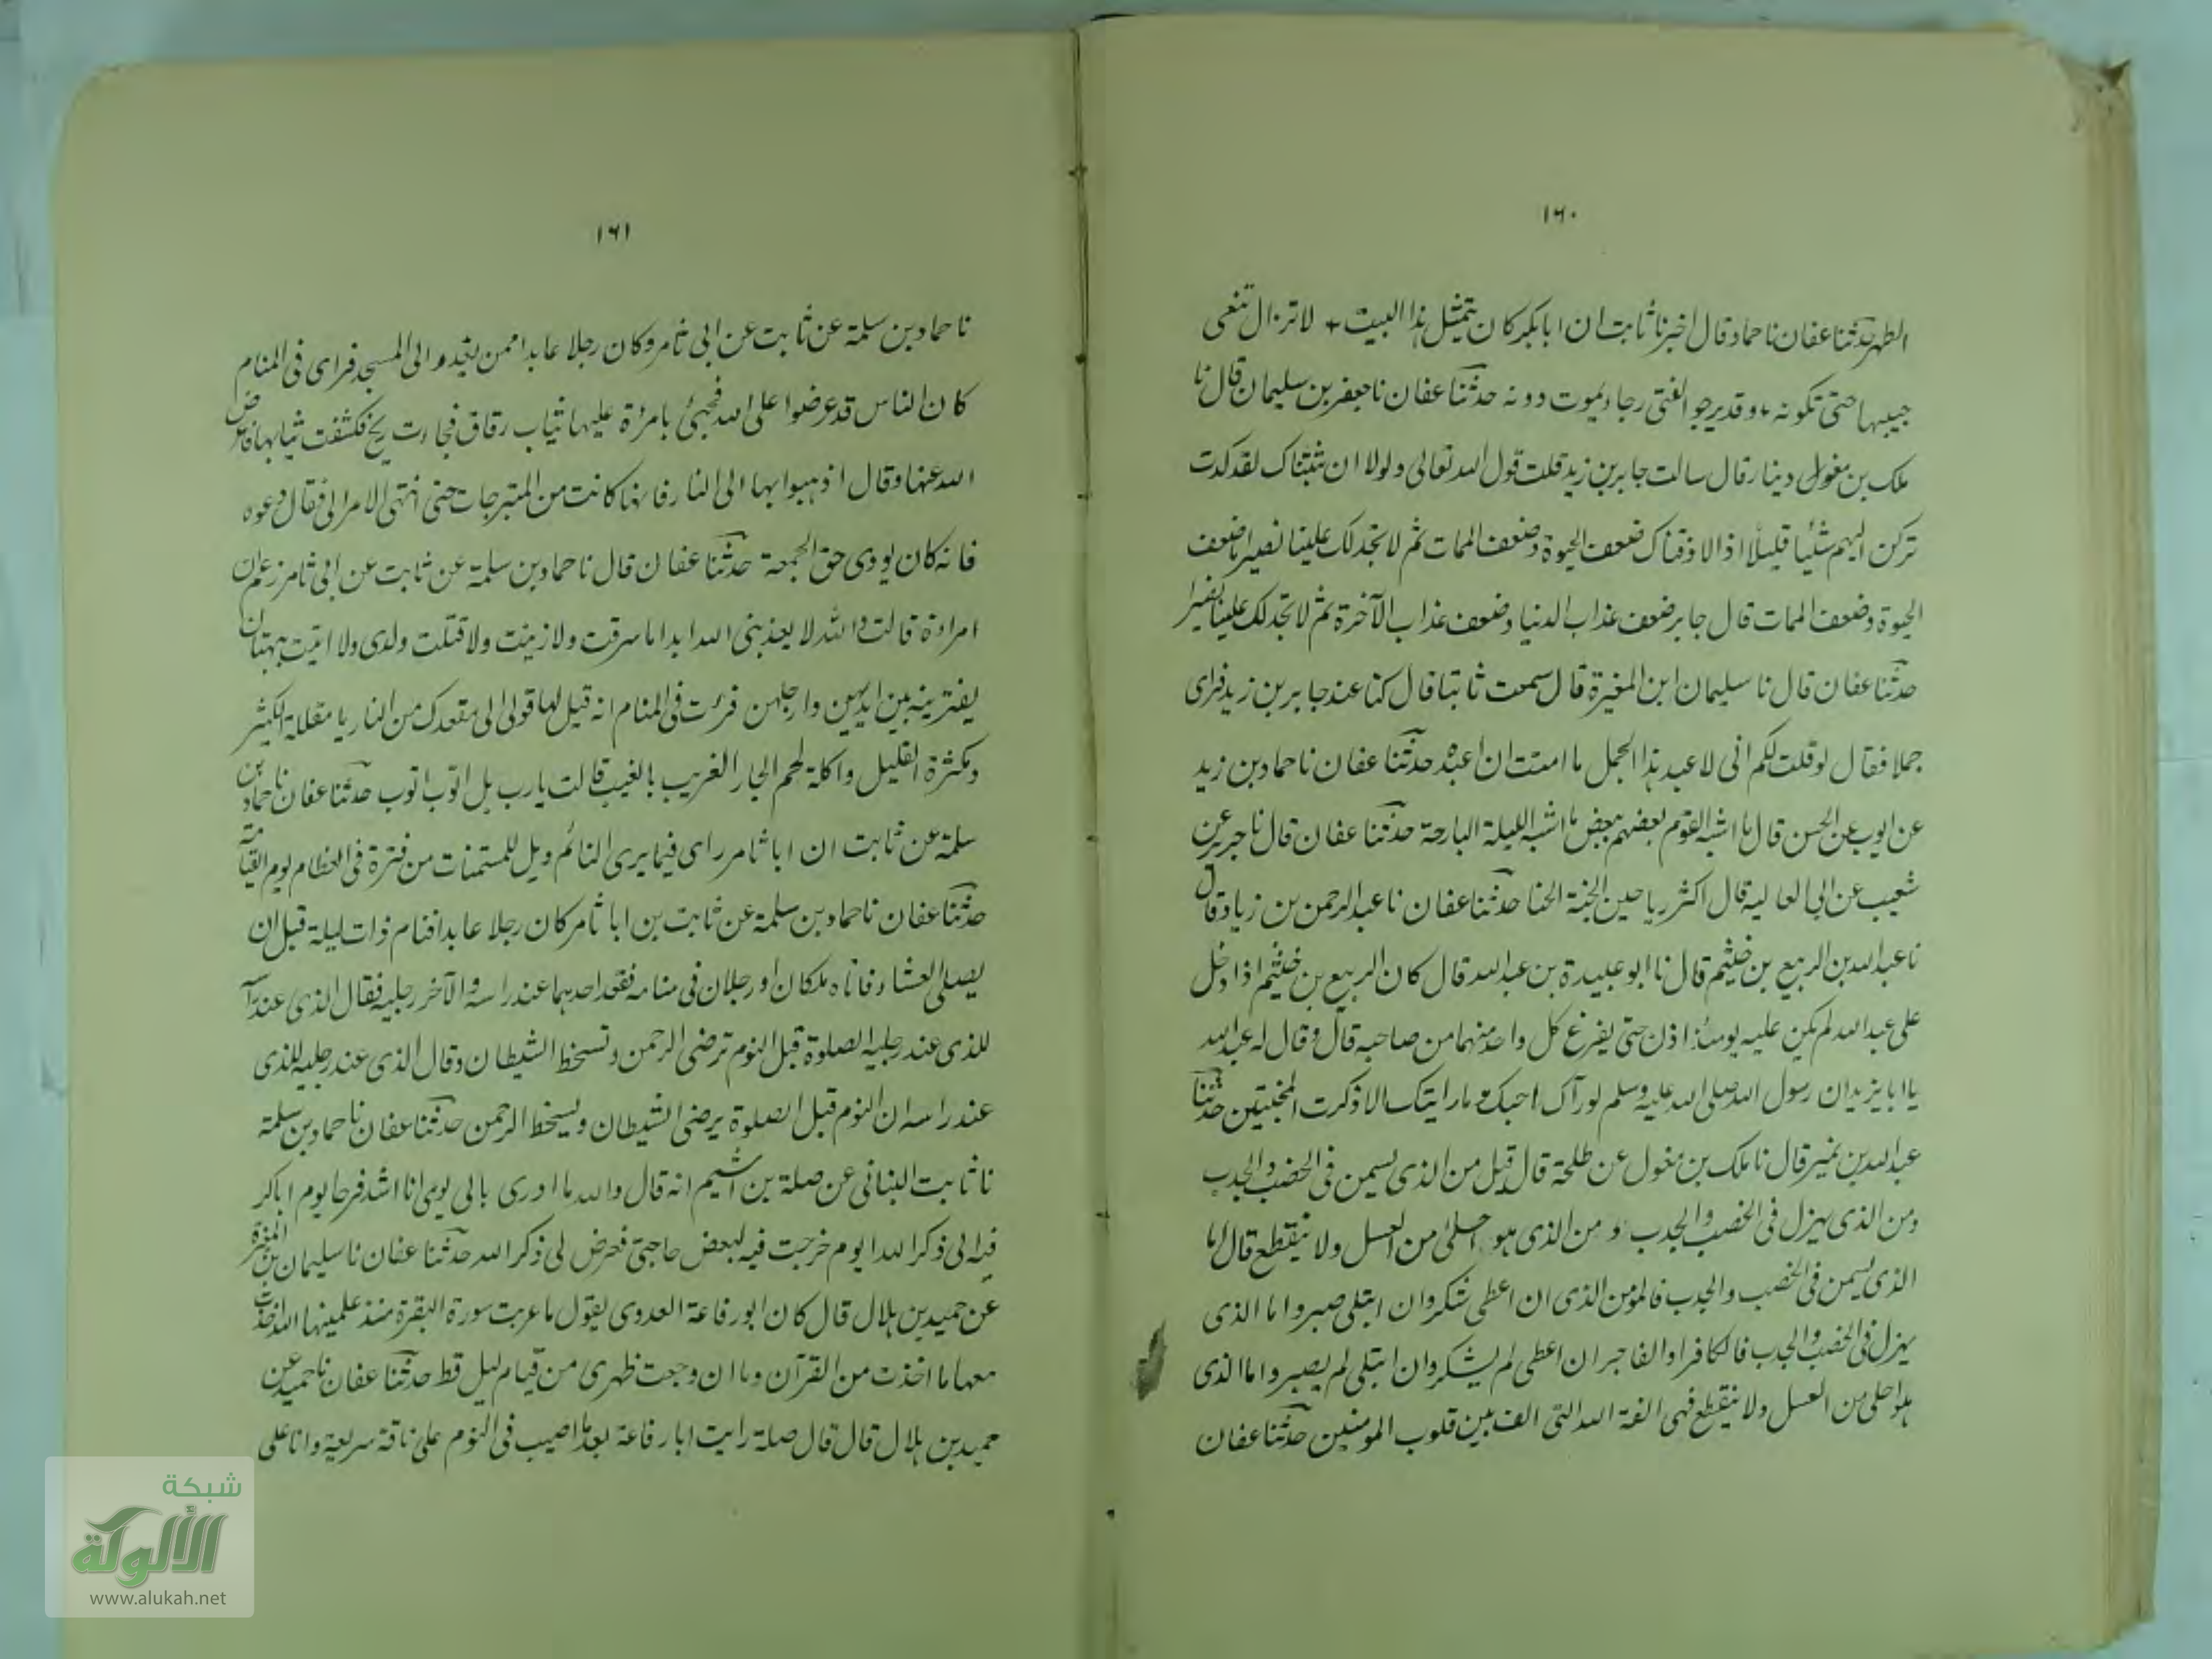 ١٦٠
الطهر حدثنا عفان نا حماد قال اخبرنا ثابت ان ابا بكر كان يتمثل هذا البيت + لا تزال تنعى
حبيبها حتى تكونه + وقد يرجو الفتى رجاء يموت دونه حدثنا عفان نا جعفر بن سليمان قال نا
ملك بن مغول دينار قال سالت جابر بن زيد قلت قول الله تعالى ولولا ان ثبتناك لقد كدت
تركن اليهم شيئا قليلا اذا لا ذقناك ضعف الحيوة وضعف الممات ثم لا تجد لك علينا نصيرا ما ضعف
الحيوة وضعف الممات قال جابر ضعف عذاب الدنيا وضعف عذاب الآخرة ثم لا تجد لك علينا نصيرا
حدثنا عفان قال نا سليمان ابن المغيرة قال سمعت ثابتا قال كنا عند جابر بن زيد فراى
جملا فقال لو قلت لكم انى لا عبد هذا الجمل ما امنت ان اعبده حدثنا عفان نا حماد بن زيد
عن ايوب عن الحسن قال ما اشبه القوم بعضهم ببعض ما اشبه الليلة البارحة حدثنا عفان قال نا جرير عن
شعيب عن ابى العالية قال اكثر رياحين الجنة الحنا حدثنا عفان نا عبد الرحمن بن زياد قال
نا عبد الله بن الربيع بن خثيم قال نا ابو عبيدة بن عبد الله قال كان الربيع بن خثيم اذا دخل
على عبد الله لم يكن عليه يومئذ اذن حتى يفرغ كل واحد منهما من صاحبه قال وقال له عبد الله
يا ابا يزيد ان رسول الله صلى الله عليه وسلم لو رآك احبك وما رايتك الا ذكرت المخبتين حدثنا
عبد الله بن نمير قال نا ملك بن مغول عن طلحة قال قيل من الذى يسمن فى الخصب والجدب
ومن الذى يهزل فى الخصب والجدب و من الذى هو احلى من العسل ولا ينقطع قال اما
الذى يسمن فى الخصب والجدب فالمؤمن الذى ان اعطى شكر وان ابتلى صبر واما الذى
يهزل فى الخصب والجدب فالكافر او الفاجر ان اعطى لم يشكر وان ابتلى لم يصبر واما الذى
هو احلى من العسل ولا ينقطع فهى الفة الله التى الف بين قلوب المومنين حدثنا عفان
١٦١
نا حماد بن سلمة عن ثابت عن ابى ثامر وكان رجلا عابدا ممن يغدو الى المسجد فراى فى المنام
كان الناس قد عرضوا على الله فجيئ بامرأة عليها ثياب رقاق فجاءت ريح فكشفت ثيابها فاعرض
الله عنها وقال اذهبوا بها الى النار فانها كانت من المتبرجات حتى انتهى الامر الى فقال دعوه
فانه كان يودى حق الجمعة حدثنا عفان قال نا حماد بن سلمة عن ثابت عن ابى ثامر زعم ان
امراءة قالت والله لا يعذبنى الله ابدا ما سرقت ولا زنيت ولا قتلت ولدى ولا اتيت ببهتان
يفترينه بين ايديهن وارجلهن فرئت فى المنام انه قيل لها قولى الى مقعدك من النار يا مقللة الكثير
ومكثرة القليل واكلة لحم الجار الغريب بالغيب قالت يارب بل اتوب اتوب حدثنا عفان نا حماد بن
سلمة عن ثابت ان ابا ثامر راى فيما يرى النائم ويل للمتسمنات من فترة فى العظام يوم القيامة
حدثنا عفان نا حماد بن سلمة عن ثابت بن ابا ثامر كان رجلا عابدا فنام ذات ليلة قبل ان
يصلى العشاء فاتاه ملكان او رجلان فى منامه فقعد احدهما عند راسه والآخر رجليه فقال الذى عند راسه
للذى عند رجليه الصلوة قبل النوم ترضى الرحمن وتسخط الشيطان وقال الذى عند رجليه للذى
عند راسه ان النوم قبل الصلوة يرضى الشيطان ويسخط الرحمن حدثنا عفان نا حماد بن سلمة
نا ثابت البنانى عن صلة بن اشيم انه قال والله ما ادرى باى يومى انا اشد فرحا يوم اباكر
فيه الى ذكر الله او يوم خرجت فيه لبعض حاجتى فعرض لى ذكر الله حدثنا عفان نا سليمان بن المغيرة
عن حميد بن هلال قال كان ابو رفاعة العدوى يقول ما عربت سورة البقرة منذ علمنيها الله اخذت
معها ما اخذت من القرآن وما ان وجعت ظهرى من قيام ليل قط حدثنا عفان نا حميد عن
حميد بن هلال قال قال صلة رايت ابا رفاعة بعد ما اصيب فى النوم على ناقة سريعة وانا على
شبكة
الألوكة
www.alukah.net